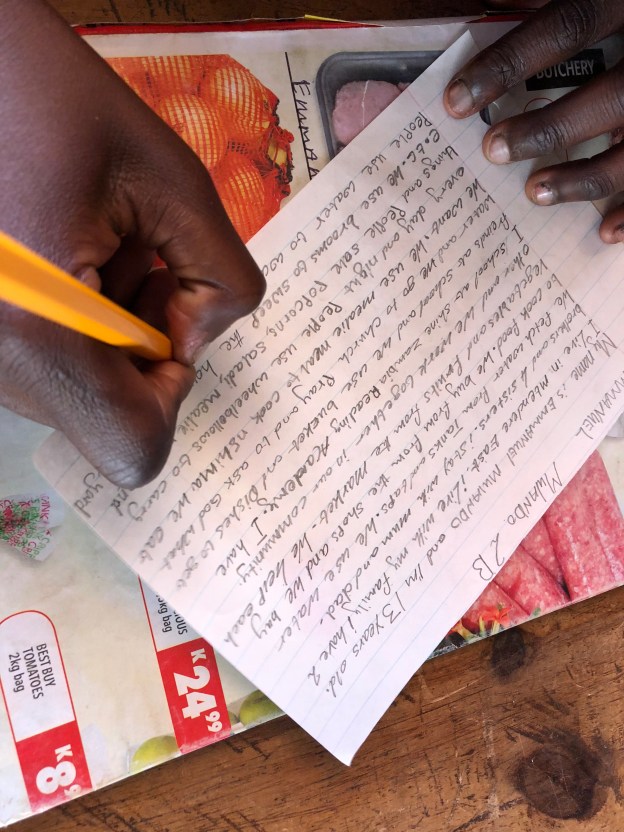 EMMANUEL MUHANDO. 2B
My name is EMMANUEL MUHANDO and Im 13 years old.
I live in Mtendere East. i live with my family I have 2
brothers and 4 sisters. i stay with mum and dad.
We fetch water from Tanks and taps. We use water
to cook food We buy from the shops and we buy
vegetables and fruits from the market. We help each
other and we work together in our community
I school at Shine Zambia Reading Academy. I have
friends at school and we use bucket and Dishes to get
water and we go to church Pray and to ask God what
We want. We use mealie meal to cook nshima We eat
every day and night People use wheelballows to carry
things and People sale Popcorns, salad, mealie
e.t.c. We use brooms to sweep the yard
People use water to
EMMA
BUTCHERY
kg bag
K24 99
BEST BUY
TOMATOES
2kg bag
K8 9